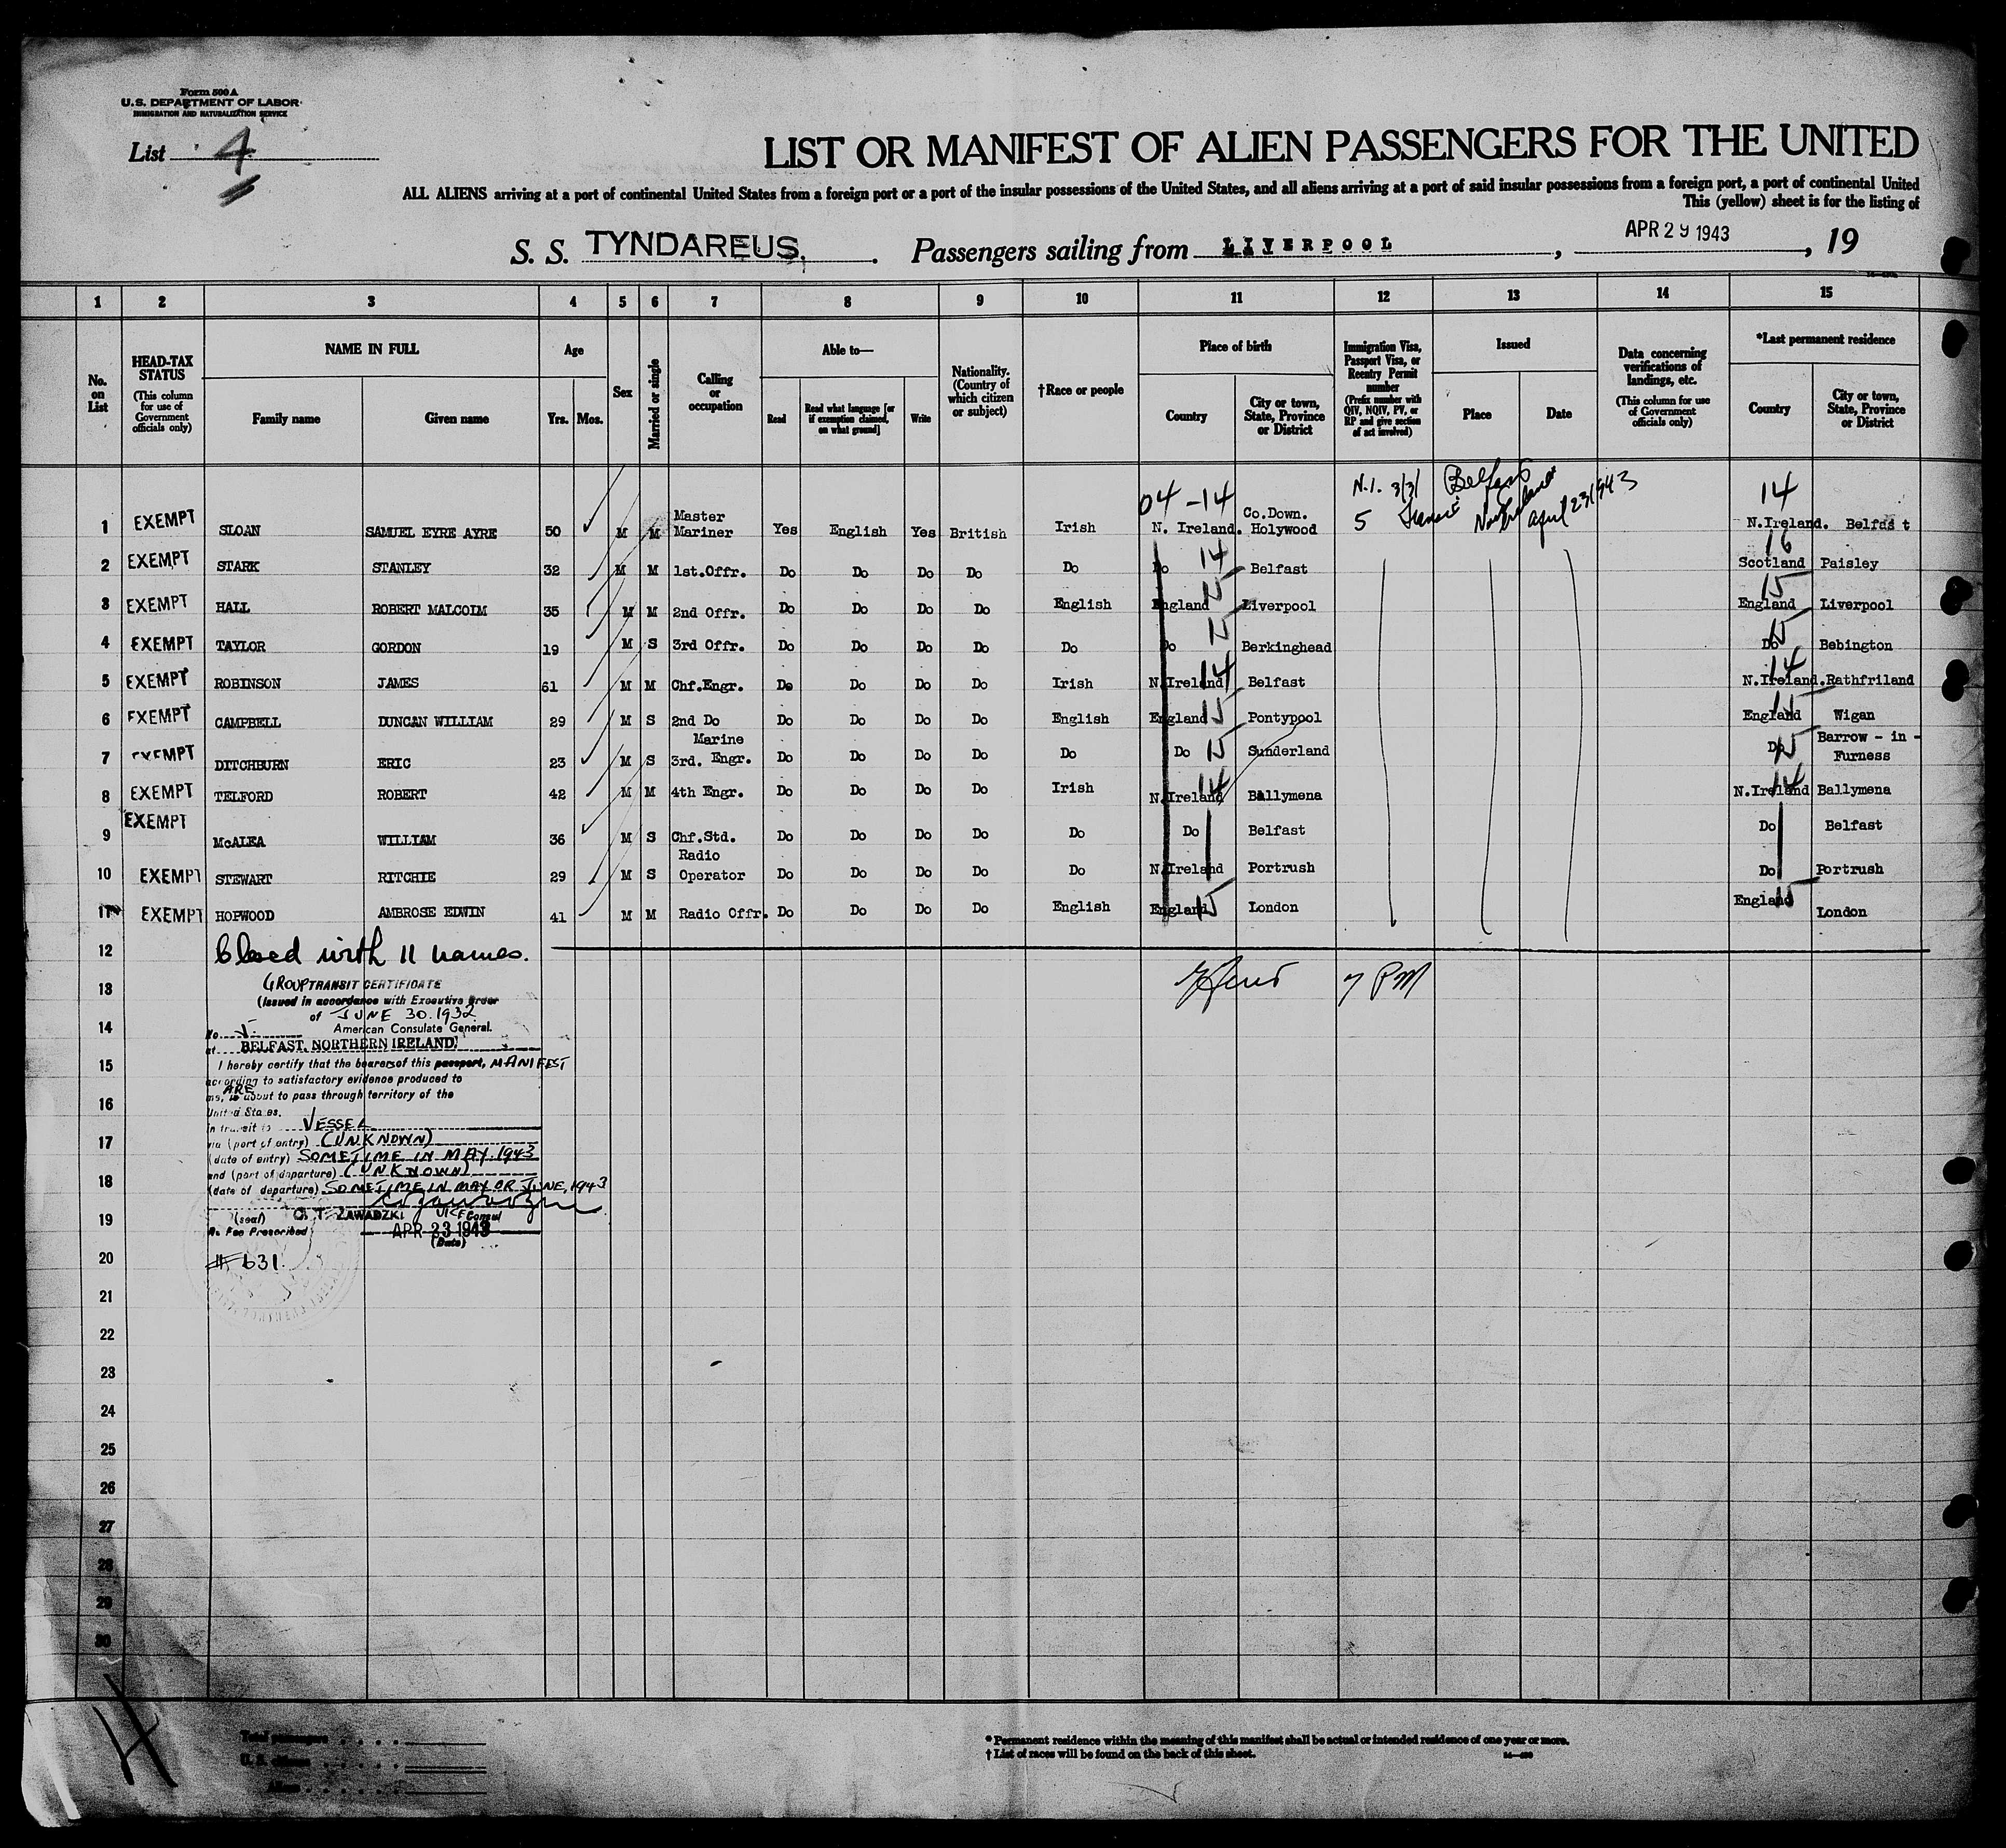 Form 500 A
U.S. DEPARTMENT OF LABOR
IMMIGRATION AND NATURALIZATION SERVICE
List 4
LIST OR MANIFEST OF ALIEN PASSENGERS FOR THE UNITED
ALL ALIENS arriving at a port of continental United States from a foreign port or a port of the insular possessions of the United States, and all aliens arriving at a port of said insular possessions from a foreign port, a port of continental United
This (yellow) sheet is for the listing of
S. S. TYNDAREUS. Passengers sailing from LIVERPOOL, APR 29 1943, 19
1 2 3 4 5 6 7 8 9 10 11 12 13 14 15
No. on List
HEAD-TAX STATUS
(This column for use of Government officials only)
NAME IN FULL
Family name
Given name
Age
Yrs. Mos.
Sex
Married or single
Calling or occupation
Able to—
Read
Read what language [or if exemption claimed, on what ground]
Write
Nationality. (Country of which citizen or subject)
†Race or people
Place of birth
Country
City or town, State, Province or District
Immigration Visa, Passport Visa, or Reentry Permit number
(Prefix number with QIV, NQIV, PV, or RP and give section of act involved)
Issued
Place
Date
Data concerning verifications of landings, etc.
(This column for use of Government officials only)
*Last permanent residence
Country
City or town, State, Province or District
04 -14 N.I. 3/31 Belfast 14
5 Transit Nor Ireland April 23 1943
1 EXEMPT SLOAN SAMUEL EYRE AYRE 50 M M Master Mariner Yes English Yes British Irish N. Ireland. Co.Down. Holywood N.Ireland. Belfast
2 EXEMPT STARK STANLEY 32 M M 1st.Offr. Do Do Do Do Do Do 14 Belfast 16 Scotland Paisley
3 EXEMPT HALL ROBERT MALCOLM 35 M M 2nd Offr. Do Do Do Do English England 15 Liverpool 15 England Liverpool
4 EXEMPT TAYLOR GORDON 19 M S 3rd Offr. Do Do Do Do Do Do 15 Berkinghead Do 15 Bebington
5 EXEMPT ROBINSON JAMES 61 M M Chf.Engr. Do Do Do Do Irish N.Ireland 14 Belfast 14 N.Ireland. Rathfriland
6 EXEMPT CAMPBELL DUNCAN WILLIAM 29 M S 2nd Do Do Do Do Do English England 15 Pontypool England 15 Wigan
7 EXEMPT DITCHBURN ERIC 23 M S Marine 3rd. Engr. Do Do Do Do Do Do 15 Sunderland Do 15 Barrow - in - Furness
8 EXEMPT TELFORD ROBERT 42 M M 4th Engr. Do Do Do Do Irish N.Ireland 14 Ballymena N.Ireland 14 Ballymena
9 EXEMPT McALEA WILLIAM 36 M S Chf.Std. Do Do Do Do Do Do Belfast Do Belfast
10 EXEMPT STEWART RITCHIE 29 M S Radio Operator Do Do Do Do Do N.Ireland Portrush Do Portrush
11 EXEMPT HOPWOOD AMBROSE EDWIN 41 M M Radio Offr. Do Do Do Do English England 15 London England 15 London
12 Closed with 11 names.
13 7 PM
GROUP TRANSIT CERTIFICATE
(Issued in accordance with Executive Order
of JUNE 30.1932
14 No. V- American Consulate General.
at BELFAST, NORTHERN IRELAND.
15 I hereby certify that the bearers of this passport, MANIFEST
according to satisfactory evidence produced to
16 me, is ARE about to pass through territory of the
United States.
In transit to VESSEL
17 via (port of entry) (UNKNOWN)
(date of entry) SOMETIME IN MAY.1943
and (port of departure) (UNKNOWN)
18 (date of departure) SOMETIME IN MAY OR JUNE, 1943
19 (seal) C. T. ZAWADZKI VICE Consul
No Fee Prescribed APR 23 1943
(Date)
20 # 631
21
22
23
24
25
26
27
28
29
30
4
Total passengers
U.S. citizens
Aliens
* Permanent residence within the meaning of this manifest shall be actual or intended residence of one year or more.
† List of races will be found on the back of this sheet.